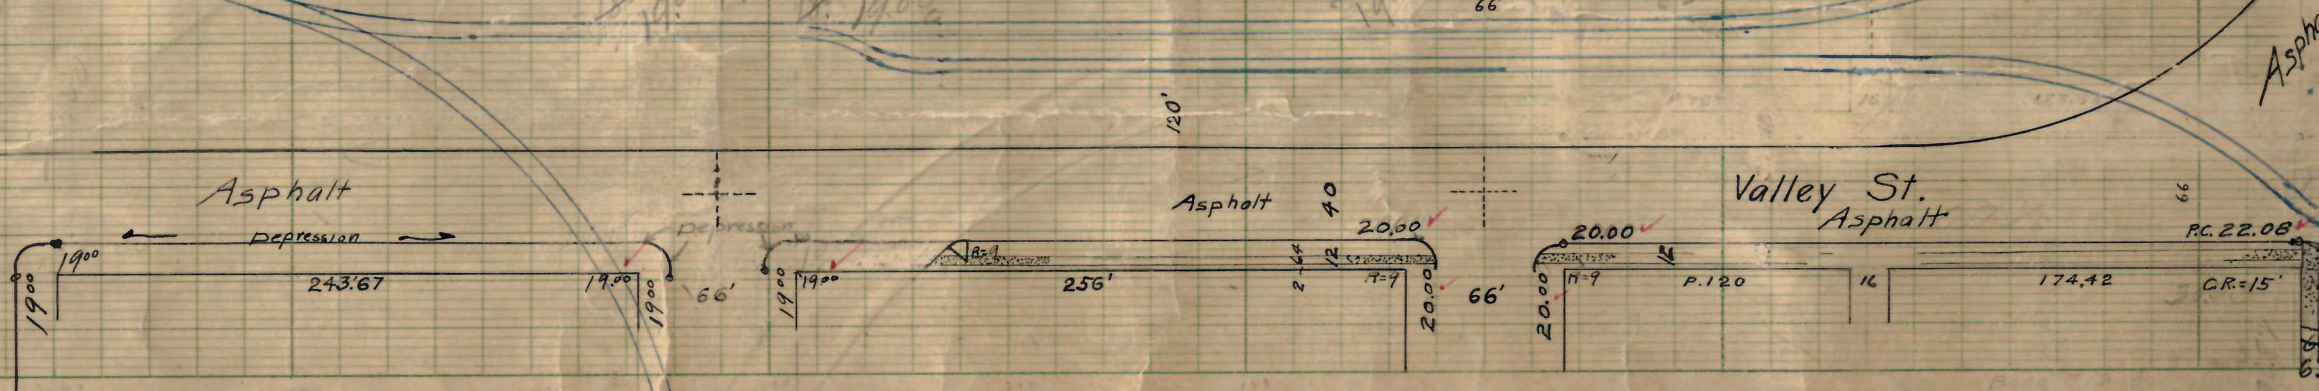 66
120'
Asphalt
Asphalt
40
Valley St.
Asphalt
66
Depression
Depression
20.60
20.00
P.C. 22.08
19⁰⁰
R=9
12
12
19⁰⁰
243.67
19.00
19⁰⁰
66'
19⁰⁰
19⁰⁰
256'
2-64
R=9
20.00
66'
20.00
R=9
P.120
16
174.42
C.R.=15'